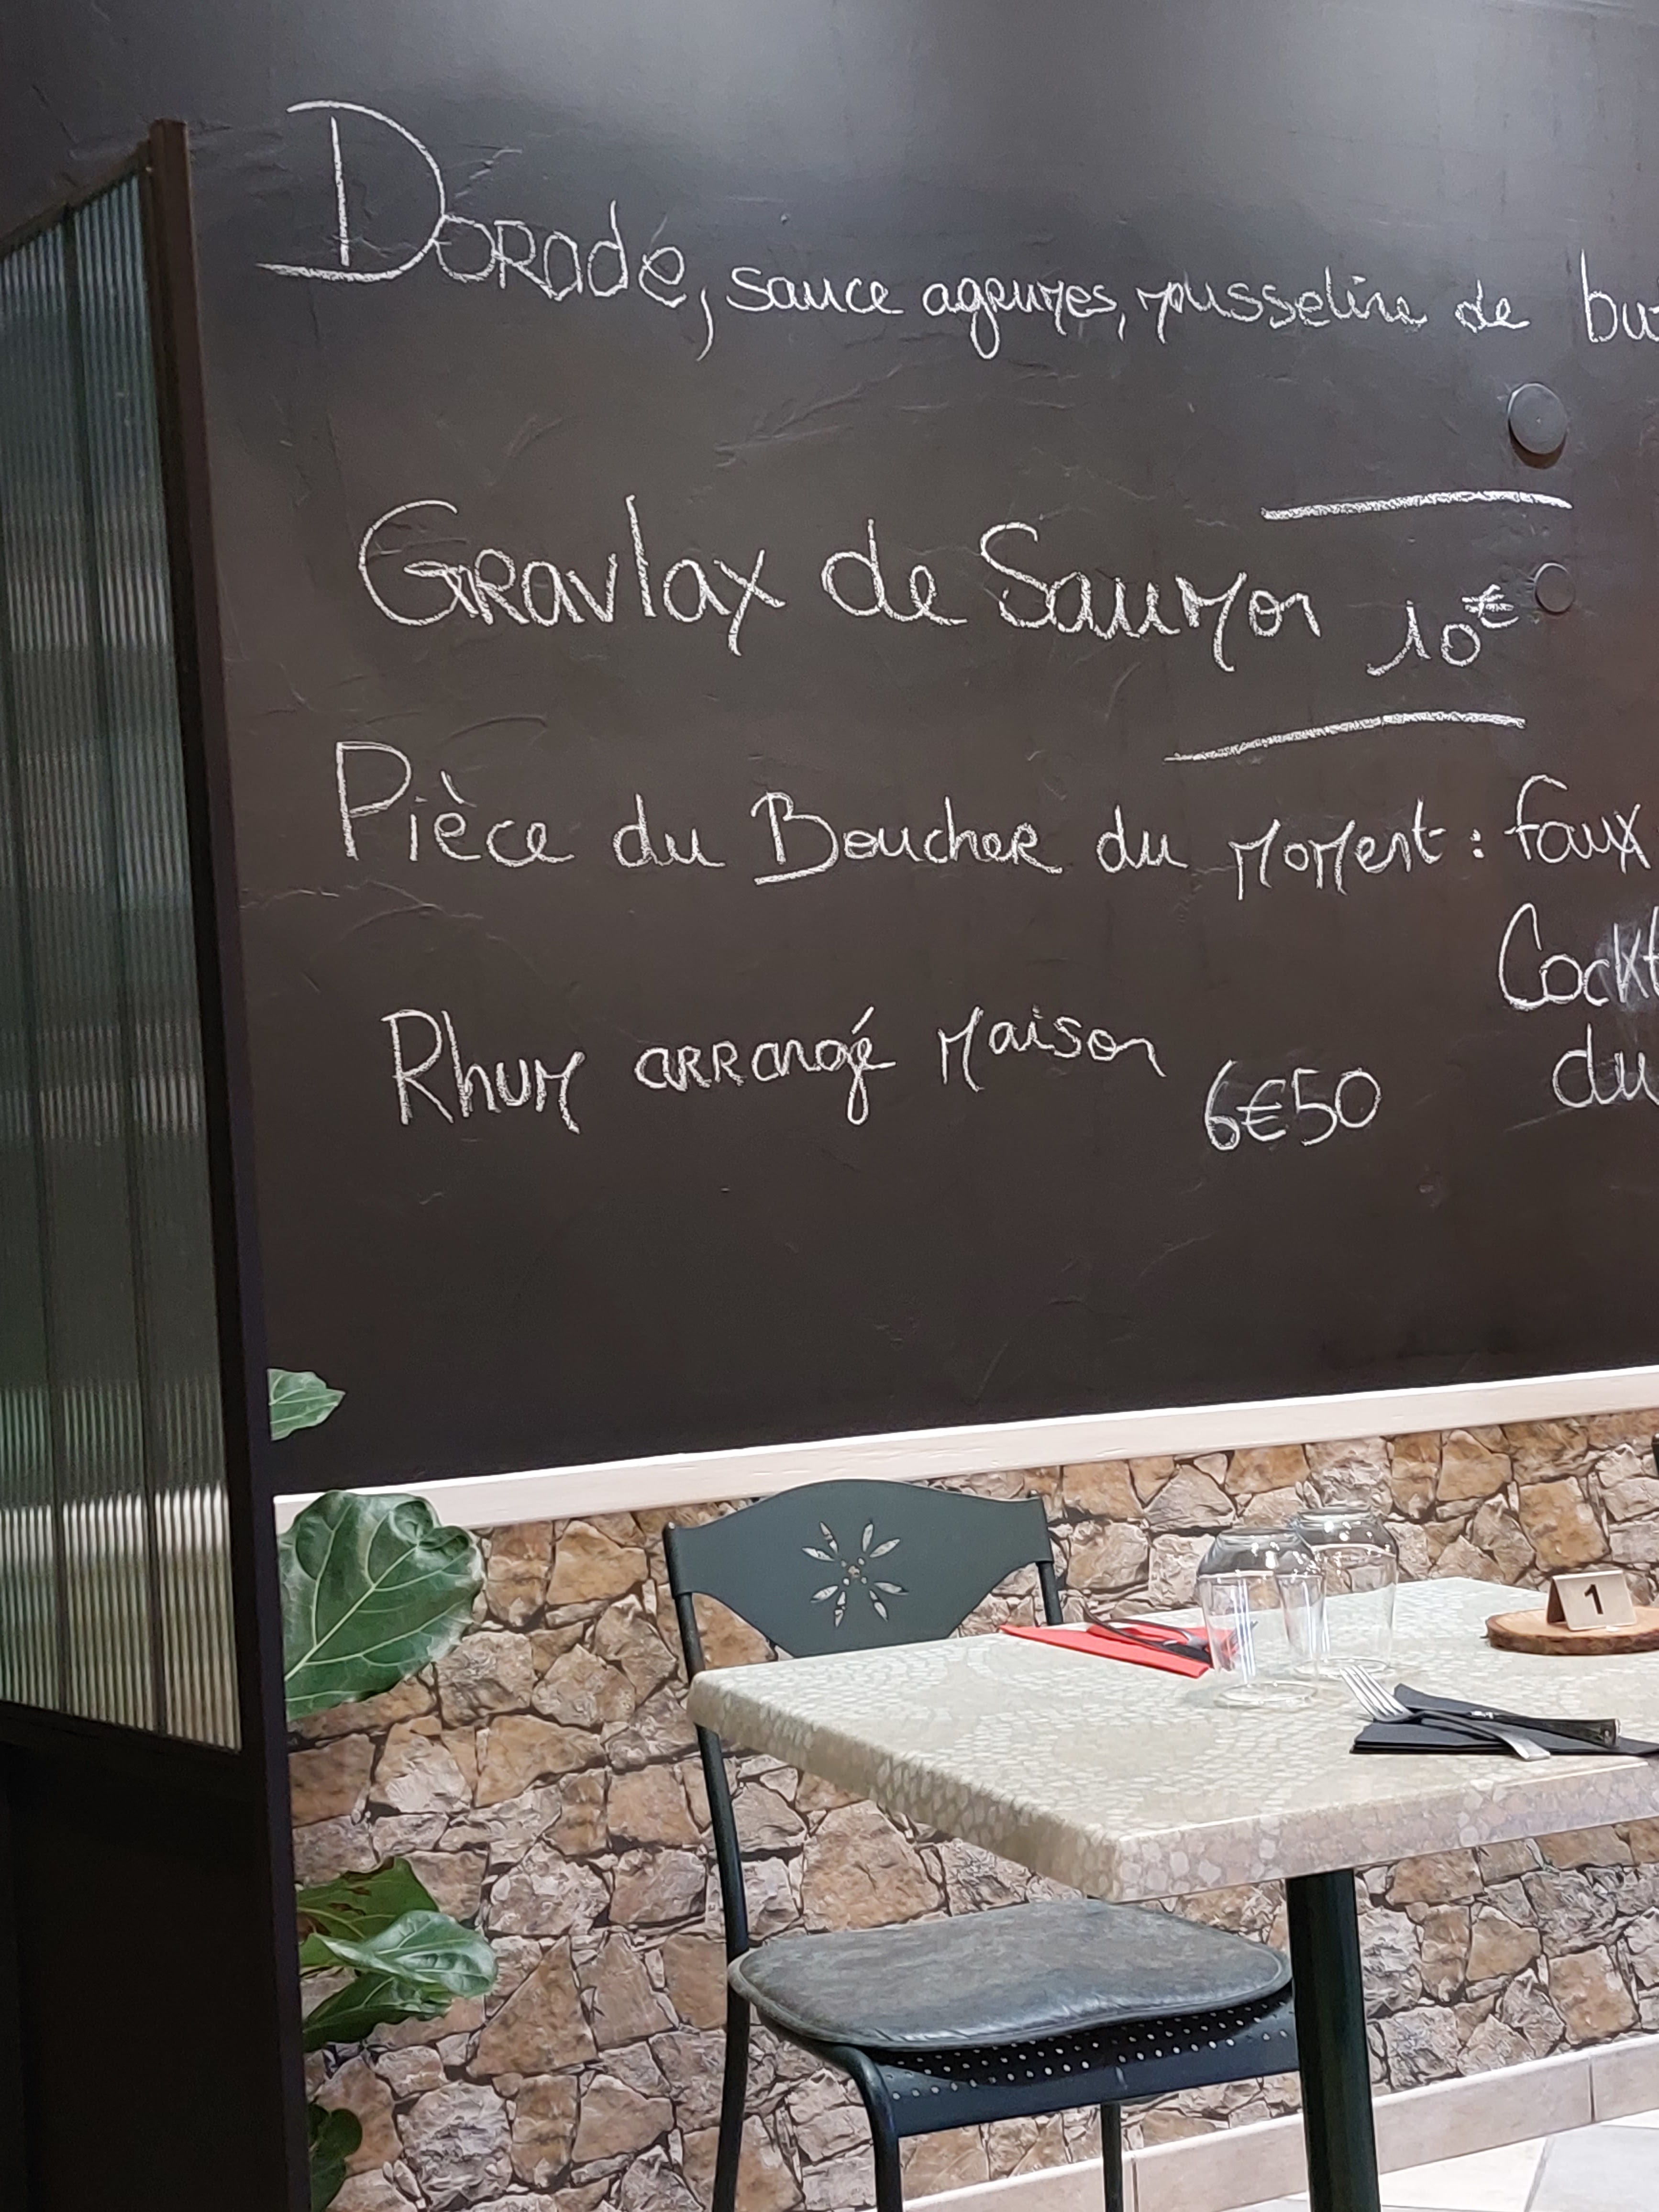 Dorade, sauce agrumes, mousseline de
Gravlax de Saumon 10€
Pièce du Boucher du moment : faux
Rhum arrangé maison 6€50
du
1